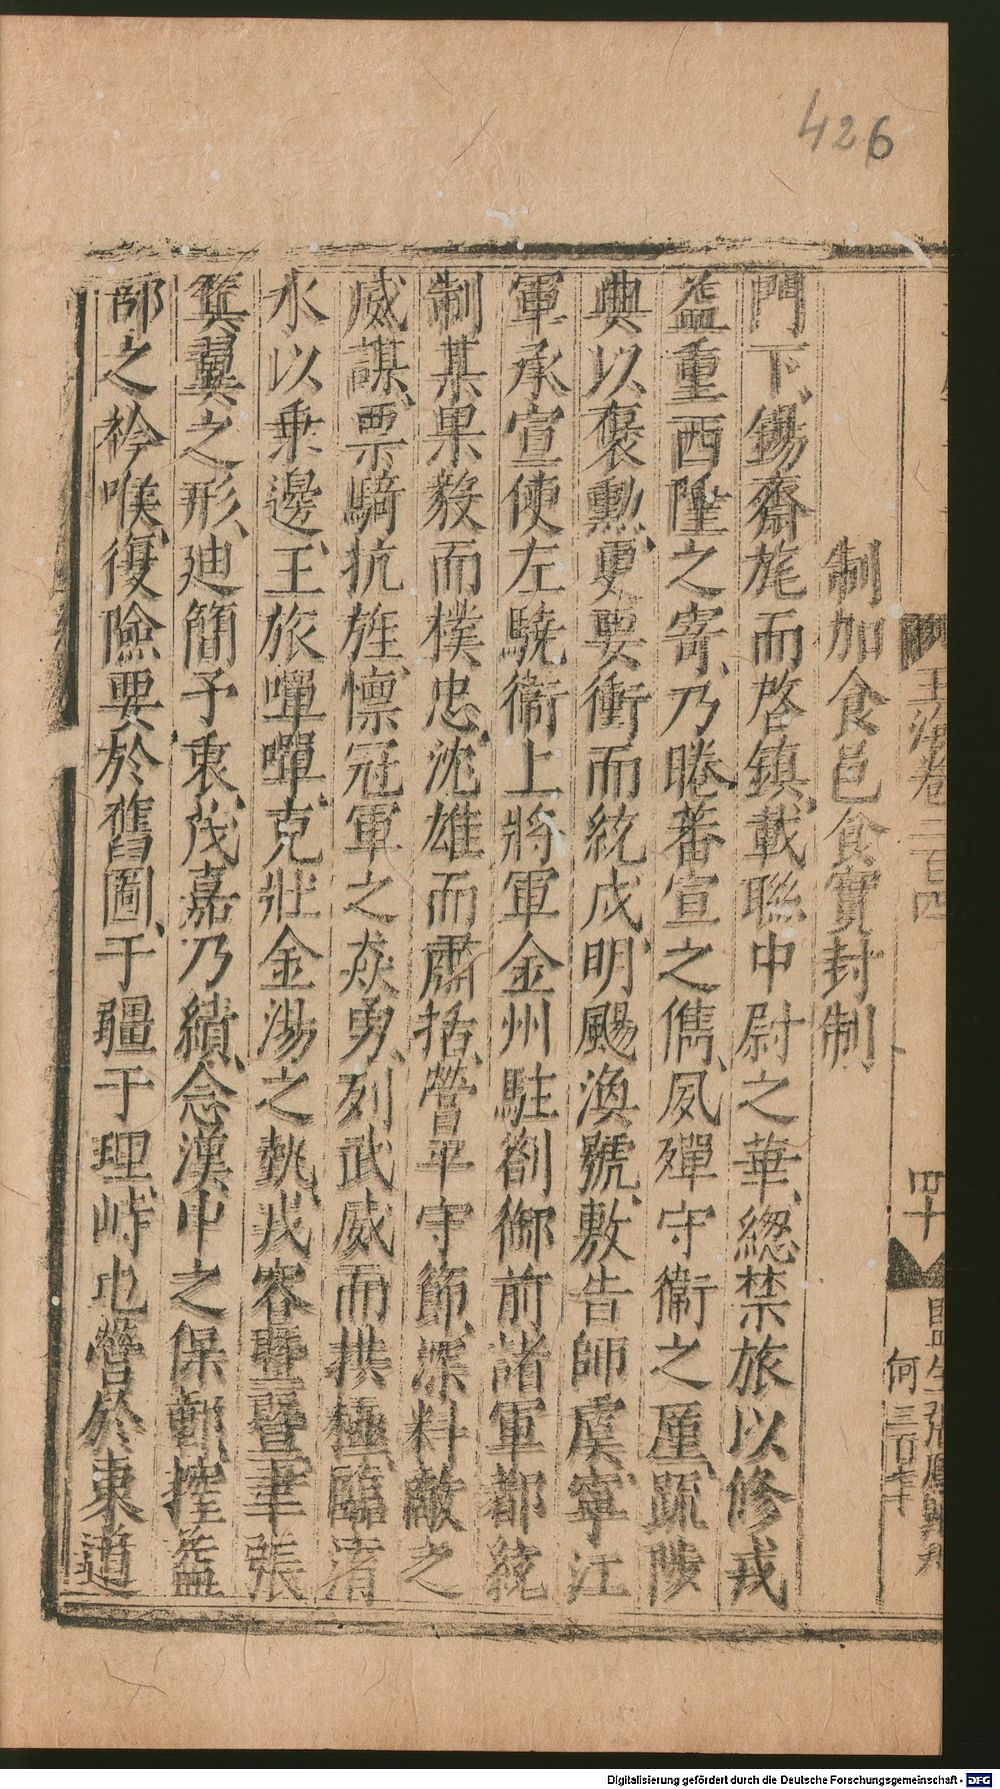 426
玉海卷二百四
四十
何
制加食邑食實封制
門下錫齋旄而啓鎮載聯中尉之華緫禁旅以修戎
益重西陲之寄乃睠蕃宣之儁夙殫守衞之厪䟽陟
典以襃勲更要衝而統戍明颺渙號敷告師虞寧江
軍承宣使左驍衞上將軍金州駐劄御前諸軍都統
制某果毅而樸忠沈雄而肅括營平守節深料敵之
威謀票騎抗旌懍冠軍之猋勇列武威而拱極臨渚
水以乗邊王旅嘽嘽克壯金湯之埶戎容曁曁聿張
箕翼之形廸簡予衷茂嘉乃績念漢中之保鄣控益
部之衿喉復險要於舊圖于疆于理峙屯營於東道
Digitalisierung gefördert durch die Deutsche Forschungsgemeinschaft - DFG